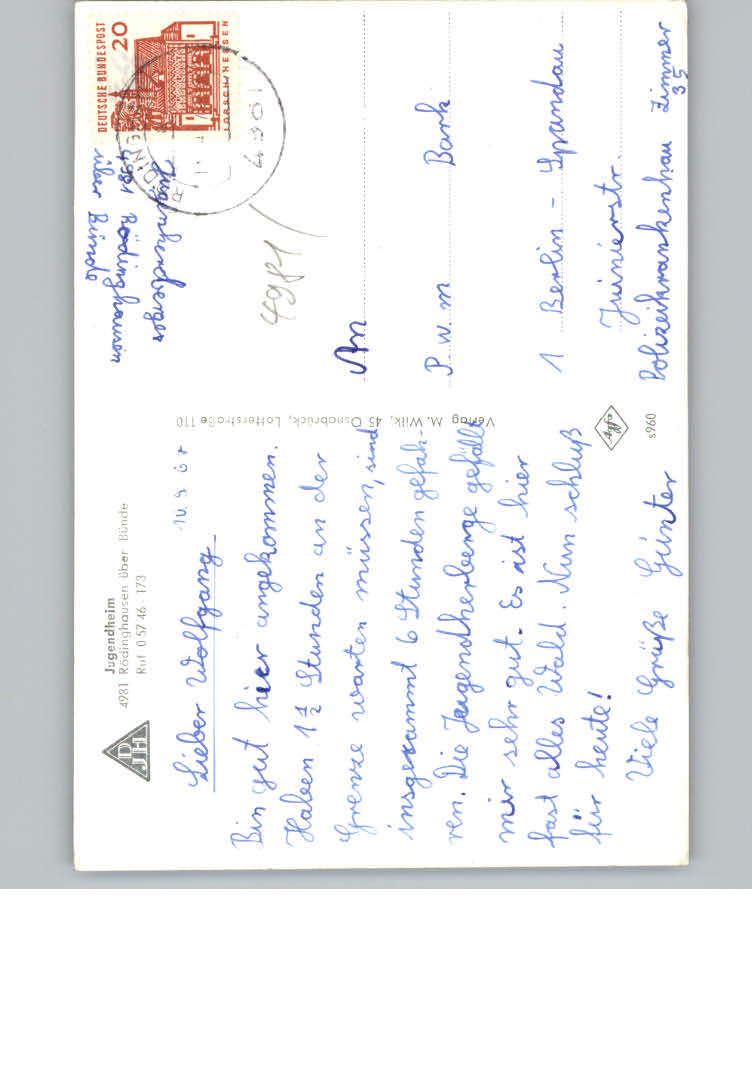 DJH
Jugendheim
4981 Rödinghausen über Bünde
Ruf 0 57 46 - 173
14.9.67
Lieber Wolfgang
Bin gut hier angekommen.
Haben 1 1/2 Stunden an der
Grenze warten müssen, sind
insgesammt 6 Stunden gefah-
ren. Die Jugendherberge gefällt
mir sehr gut. Es ist hier
fast alles Wald. Nun schluß
für heute!
Viele Grüße Günter
Verlag M. Wilk, 45 Osnabrück, Lotterstraße 110
Agfa
s960
DEUTSCHE BUNDESPOST
20
LORSCH/HESSEN
4981
Jugendherberge
4981 Rödinghausen
über Bünde
4981
An
P.w.m Bark
1 Berlin - Spandau
Polizeikrankenhau Zimmer
35